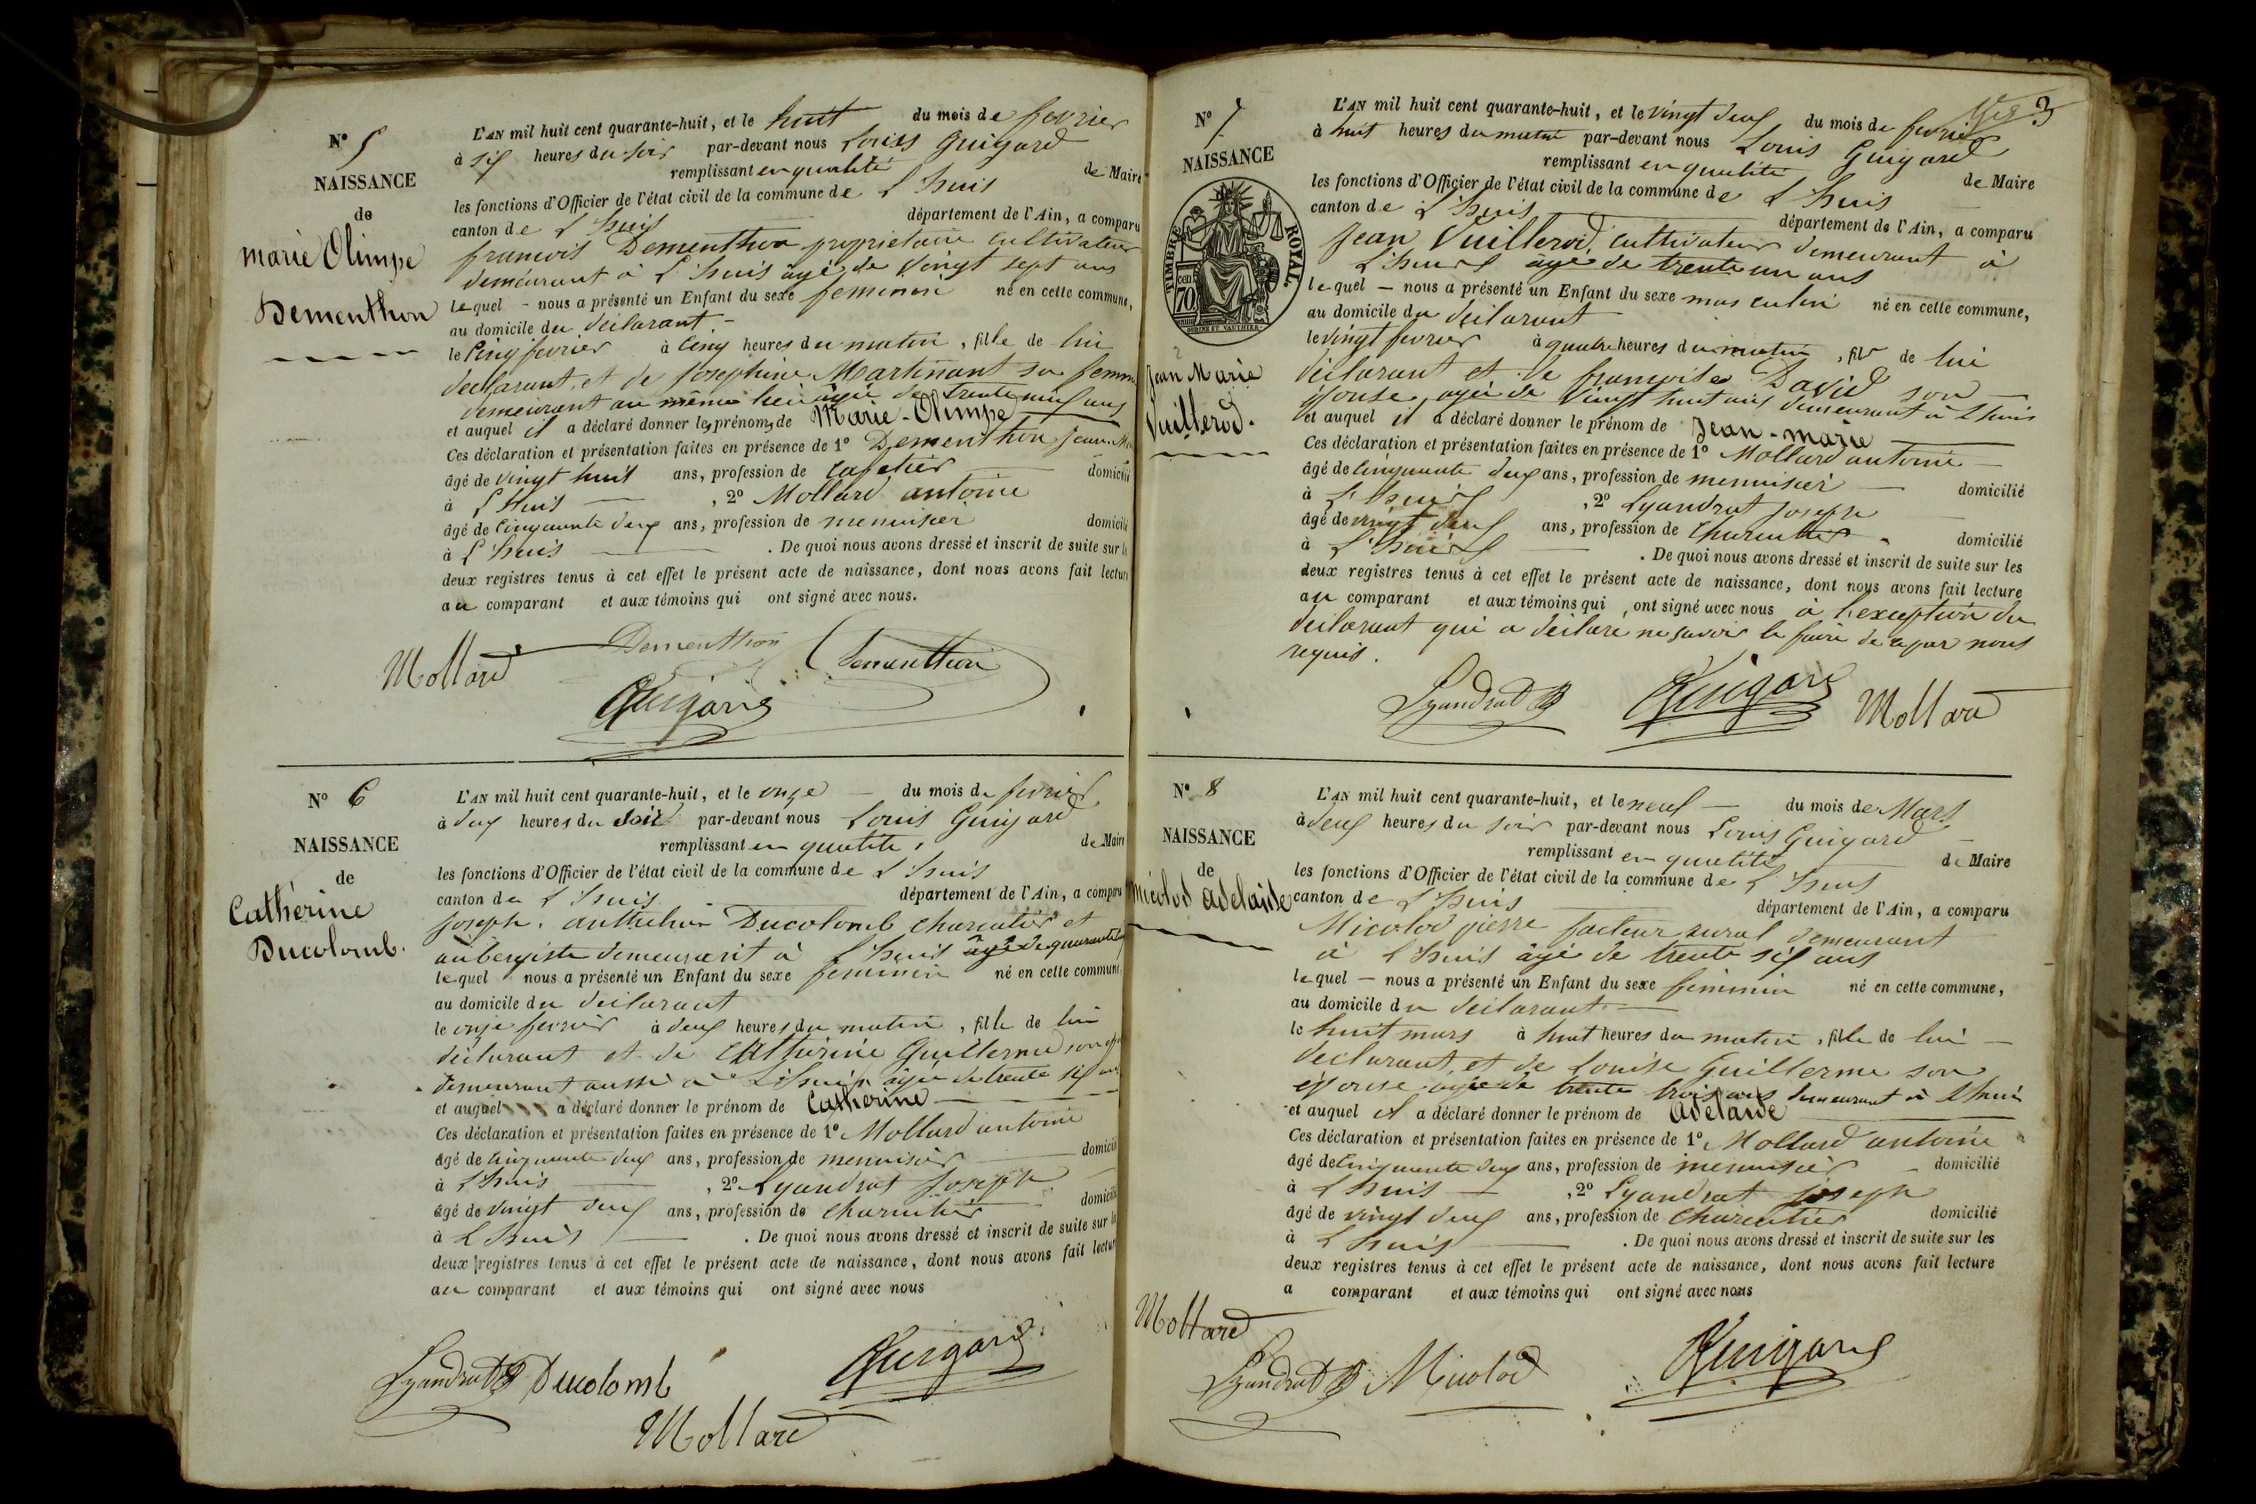 N° 5
NAISSANCE
de
marie Olimpe
Dementhon
L'AN mil huit cent quarante-huit, et le huit du mois de fevrier
à six heures du soir par-devant nous Louis Guigard
remplissant en qualité de Maire
les fonctions d'Officier de l'état civil de la commune de L'huis
canton de L'huis département de l'Ain, a comparu
francois Dementhon propriétaire cultivateur
demeurant à L'huis âgé de vingt sept ans
lequel - nous a présenté un Enfant du sexe feminin né en cette commune,
au domicile du déclarant -
le Cinq fevrier à Cinq heures du matin, fille de lui
déclarant, et de Josephine Martinant sa femme
demeurant au même lieu âgée de trente neuf ans
et auquel il a déclaré donner les prénoms de Marie-Olimpe
Ces déclaration et présentation faites en présence de 1° Dementhon Jean-
âgé de vingt huit ans, profession de cafetier domicilié
à L'huis , 2° Mollard antoine
âgé de Cinquante deux ans, profession de menuisier domicilié
à L'huis . De quoi nous avons dressé et inscrit de suite sur les
deux registres tenus à cet effet le présent acte de naissance, dont nous avons fait lecture
au comparant et aux témoins qui ont signé avec nous.
Mollard Dementhon Dementhon
Guigard
N° 6
NAISSANCE
de
Catherine
Ducolomb.
L'AN mil huit cent quarante-huit, et le onze — du mois de fevrier
à deux heures du soir par-devant nous Louis Guigard
remplissant en qualité de Maire
les fonctions d'Officier de l'état civil de la commune de L'huis
canton de L'huis département de l'Ain, a comparu
joseph. anthelme Ducolomb charcutier et
aubergiste demeurant à L'huis âgé de quarante
lequel nous a présenté un Enfant du sexe feminin né en cette commune,
au domicile du déclarant
le onze fevrier à deux heures du matin, fille de lui
déclarant et de Catherine Guillerme son
demeurant aussi à L'huis, âgée de trente six ans
et auquel a déclaré donner le prénom de Catherine
Ces déclaration et présentation faites en présence de 1° Mollard antoine
âgé de Cinquante deux ans, profession de menuisier domicilié
à L'huis , 2° Lyandrat Joseph
âgé de vingt deux ans, profession de charcutier domicilié
à L'huis . De quoi nous avons dressé et inscrit de suite sur les
deux registres tenus à cet effet le présent acte de naissance, dont nous avons fait lecture
au comparant et aux témoins qui ont signé avec nous
Lyandrat Ducolomb Guigard
Mollard
3
N° 7
NAISSANCE
TIMBRE ROYAL
cen 70
Jean Marie
Vuillerod.
L'AN mil huit cent quarante-huit, et le vingt deux du mois de fevrier
à huit heures du matin par-devant nous Louis Guigard
remplissant en qualité de Maire
les fonctions d'Officier de l'état civil de la commune de L'huis
canton de L'huis département de l'Ain, a comparu
Jean Vuillerod, cultivateur demeurant à
L'huis âgé de trente un ans
lequel — nous a présenté un Enfant du sexe masculin né en cette commune,
au domicile du déclarant
le vingt fevrier à quatre heures du matin, fils de lui
déclarant et de françoise David son
épouse, agée de vingt huit ans demeurant à L'huis
et auquel il a déclaré donner le prénom de Jean-marie
Ces déclaration et présentation faites en présence de 1° Mollard antoine
âgé de Cinquante deux ans, profession de menuisier domicilié
à L'huis , 2° Lyandrat Joseph
âgé de vingt deux ans, profession de charcutier domicilié
à L'huis . De quoi nous avons dressé et inscrit de suite sur les
deux registres tenus à cet effet le présent acte de naissance, dont nous avons fait lecture
au comparant et aux témoins qui, ont signé avec nous à l'exception du
déclarant qui a déclaré ne savoir le faire de ce par nous
requis.
Lyandrat Guigard Mollard
N° 8
NAISSANCE
de
Micolod Adelaide
L'AN mil huit cent quarante-huit, et le neuf — du mois de Mars
à deux heures du soir par-devant nous Louis Guigard
remplissant en qualité de Maire
les fonctions d'Officier de l'état civil de la commune de L'huis
canton de L'huis département de l'Ain, a comparu
Micolod pierre facteur rural demeurant
à L'huis âgé de trente six ans
lequel — nous a présenté un Enfant du sexe féminin né en cette commune,
au domicile du déclarant
le huit mars à huit heures du matin, fille de lui
déclarant, et de Louise Guillerme son
épouse agée de trente trois ans demeurant à L'huis
et auquel il a déclaré donner le prénom de Adelaide
Ces déclaration et présentation faites en présence de 1° Mollard antoine
âgé de Cinquante deux ans, profession de menuisier domicilié
à L'huis , 2° Lyandrat joseph
âgé de vingt deux ans, profession de charcutier domicilié
à L'huis . De quoi nous avons dressé et inscrit de suite sur les
deux registres tenus à cet effet le présent acte de naissance, dont nous avons fait lecture
a comparant et aux témoins qui ont signé avec nous
Mollard
Lyandrat Micolod Guigard